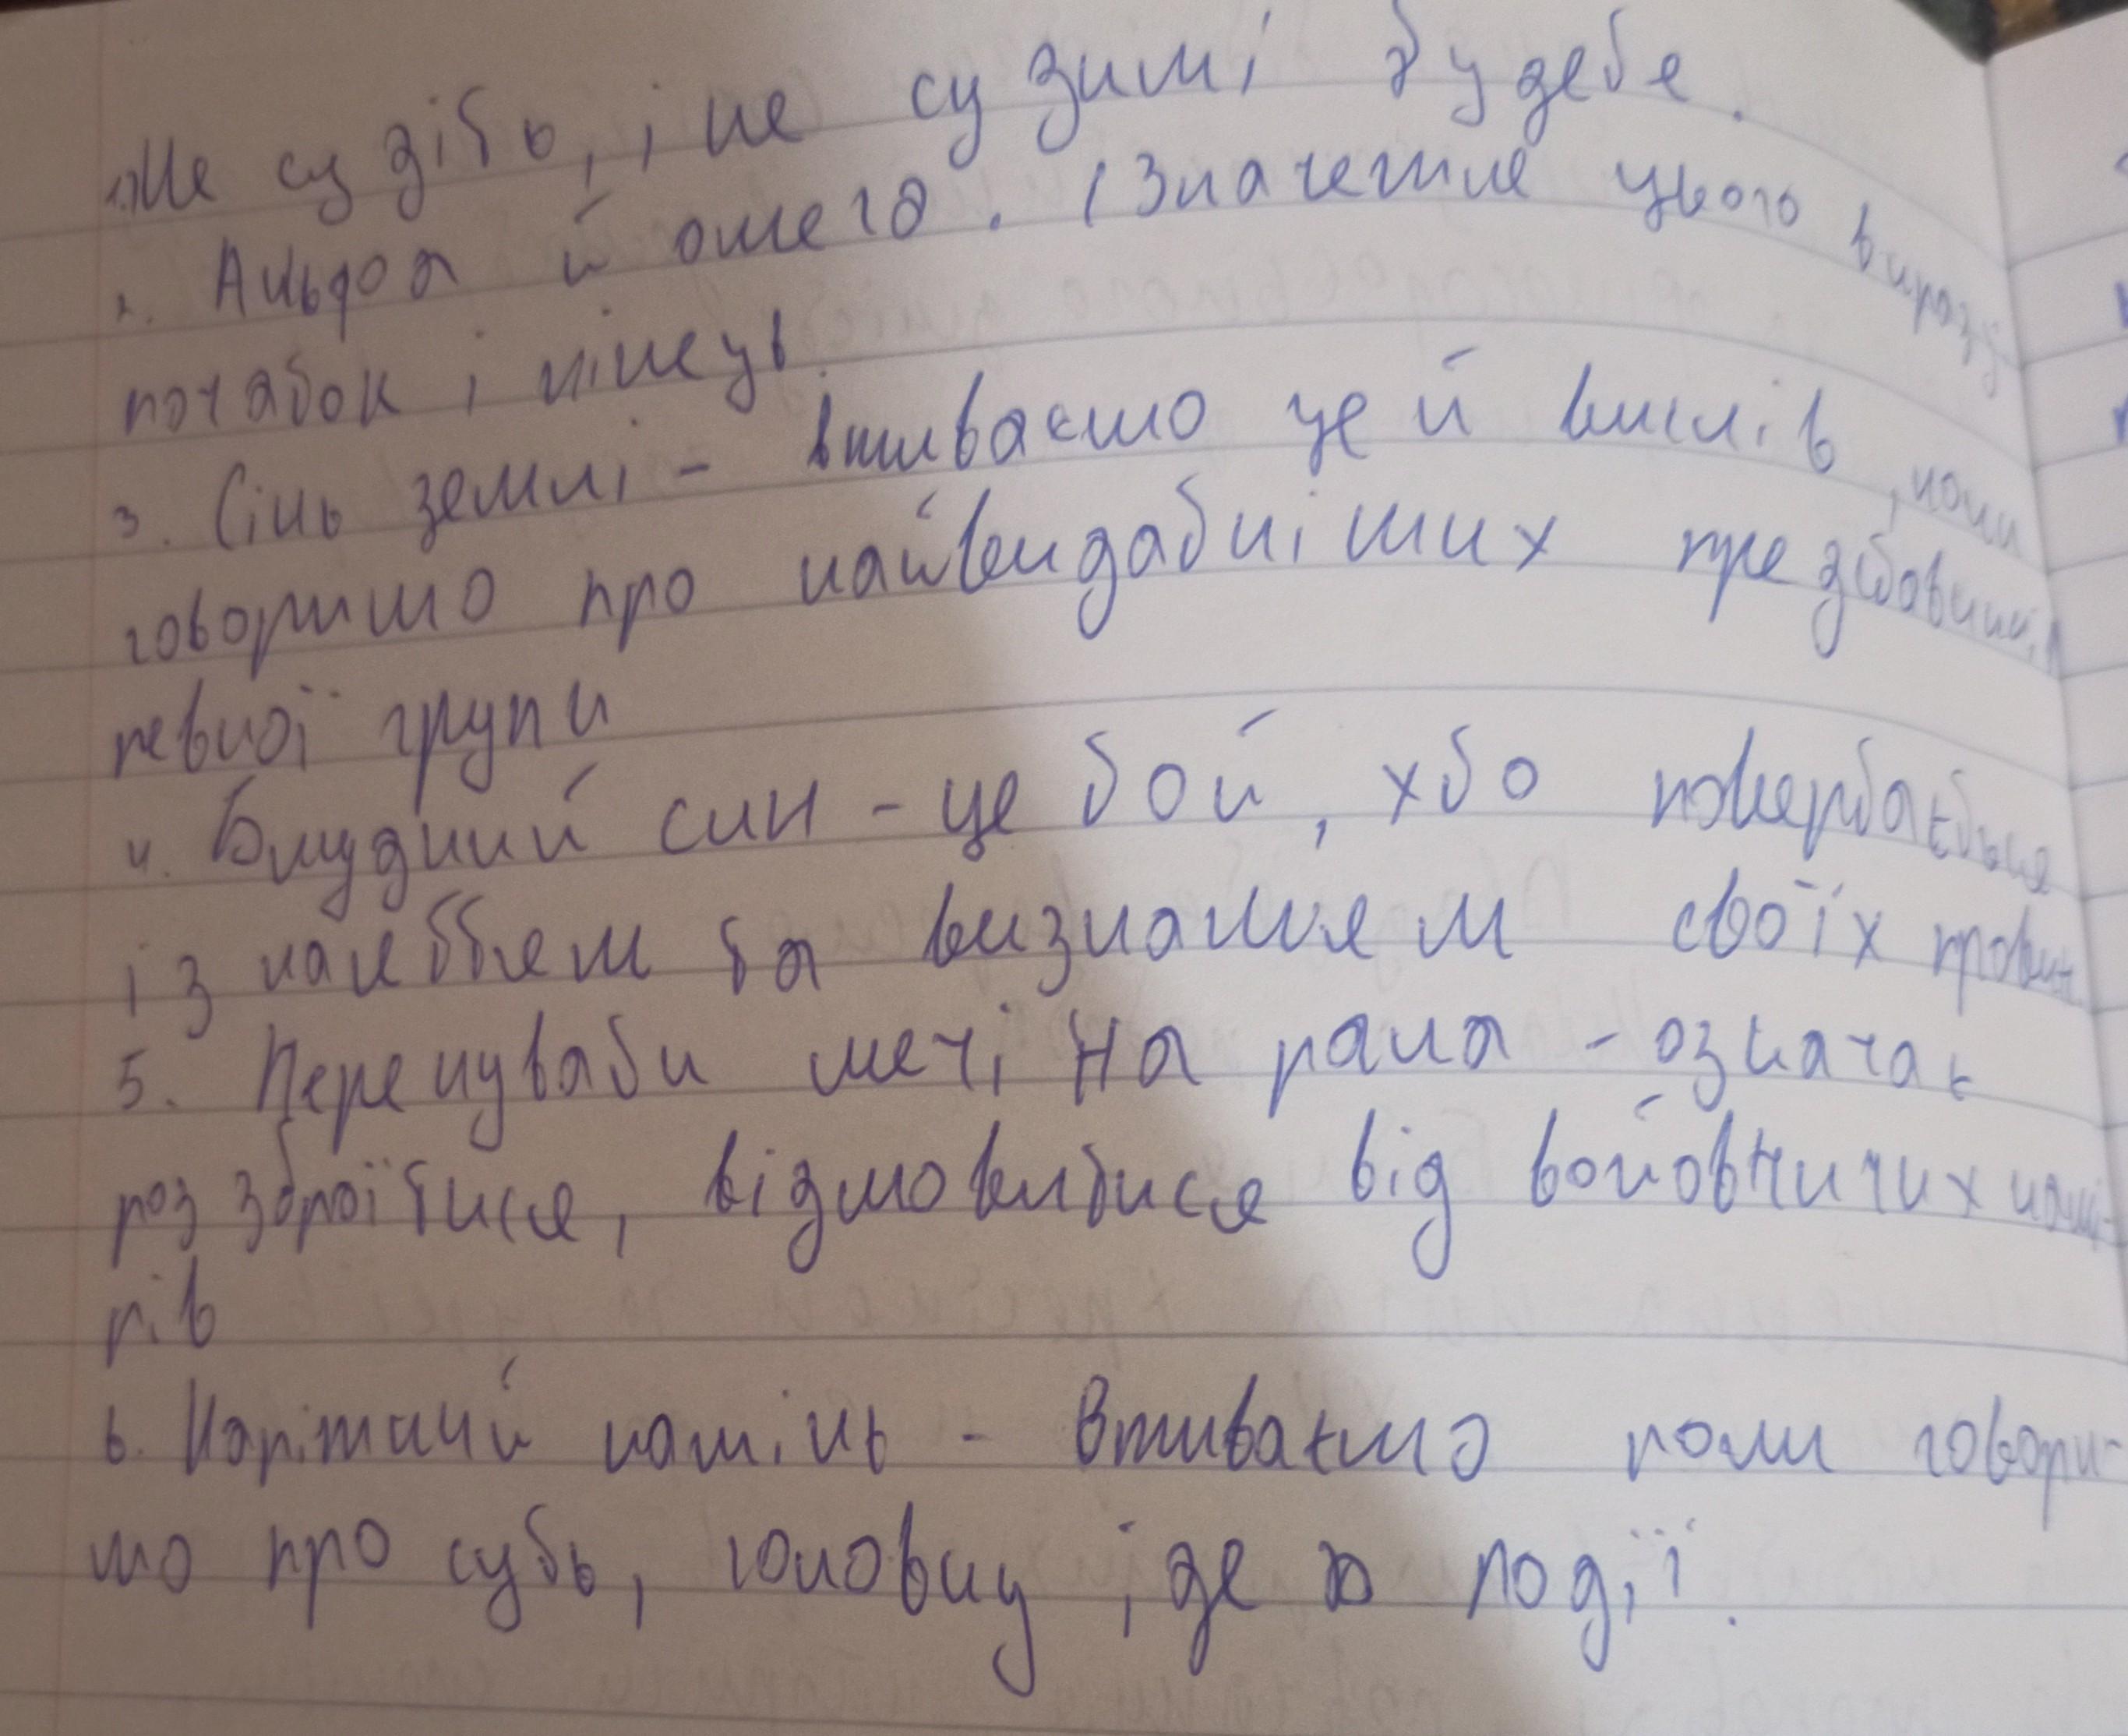 1. Не судіть, і не судимі будете.
2. Альфа й омега. (Значення цього виразу
початок і кінець.
3. Сіль землі - вживаємо цей вислів, коли
говоримо про найвидатніших представників
певної групи
4. Блудний син - це той, хто повертається
із каяттям та визнанням своїх провин
5. Перекувати мечі на рала - означає
роззброїтися, відмовитися від войовничих намі-
рів
6. Наріжний камінь - вживаємо коли говори-
мо про суть, головну ідею події.